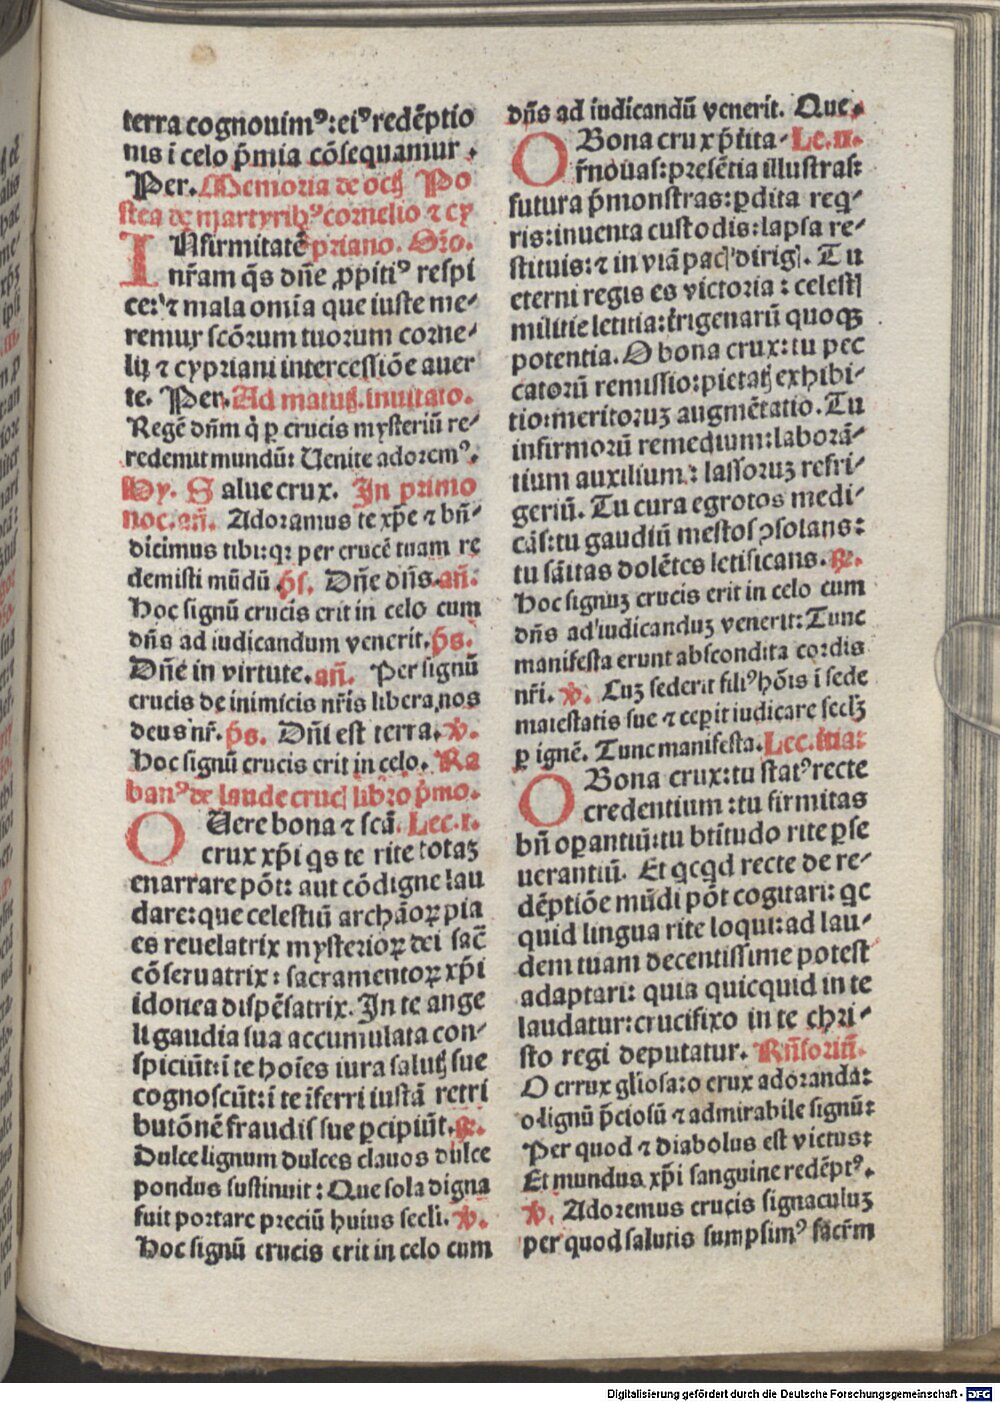 terra cognouimꝰ: eiꝰ redēptio
nis ī celo p̄mia cōsequamur.
Per. Memoria de octꝭ Po
stea de martyribꝰ cornelio ⁊ cy
INfirmitatē priano. Orō.
nr̄am q̄s dn̄e ꝓpitiꝰ respi
ce: ⁊ mala omīa que iuste me-
remur scōrum tuorum corne-
lij ⁊ cypriani intercessiōe auer
te. Per. Ad matutꝭ. inuitato.
Regē dn̄m q̇ ꝑ crucis mysteriū re-
redemit mundū: Uenite adoremꝰ.
Hy. Salue crux. In primo
noc. an̄. Adoramus te xp̄e ⁊ bn̄-
dicimus tibi: qꝛ per crucē tuam re
demisti mūdū p̄s. Dn̄e dn̄s. an̄.
Hoc signū crucis erit in celo cum
dn̄s ad iudicandum venerit. p̄s.
Dn̄e in virtute. an̄. Per signū
crucis de inimicis nr̄is libera nos
deus nr̄. p̄s. Dn̄i est terra. ℣.
Hoc signū crucis erit in celo. Ra
banꝰ de laude crucꝭ libro p̄mo.
O Uere bona ⁊ scā. Lec. i.
crux xp̄i qs te rite totaꝫ
enarrare pōt: aut cōdigne lau
dare: que celestiū archāoꝝ pia
es reuelatrix mysterioꝝ dei sac̄
cōseruatrix: sacramentoꝝ xp̄i
idonea dispēsatrix. In te ange
li gaudia sua accumulata con-
spiciūt: ī te hoīes iura salutꝭ sue
cognoscūt: ī te īferri iustā retri
butōnē fraudis sue ꝑcipiūt. ℟.
Dulce lignum dulces clauos dulce
pondus sustinuit: Que sola digna
fuit portare preciū huius secli. ℣.
Hoc signū crucis erit in celo cum
dn̄s ad iudicandū venerit. Que.
O Bona crux p̄tita. Le. ii.
r̄nouas: presētia illustras:
futura p̄monstras: ꝑdita req̇-
ris: inuenta custodis: lapsa re-
stituis: ⁊ in viā pacꝭ dirigꝭ. Tu
eterni regis es victoria: celestꝭ
militie letitia: t̄rigenarū quoqꝫ
potentia. O bona crux: tu pec
catorū remissio: pietatꝭ exhibi-
tio: meritoruꝫ augmētatio. Tu
infirmorū remedium: laborā-
tium auxilium: lassoruꝫ refri-
geriū. Tu cura egrotos medi-
cās: tu gaudiū mestos ꝯsolans:
tu sāitas dolētes letificans. ℟.
Hoc signuꝫ crucis erit in celo cum
dn̄s ad iudicanduꝫ venerit: Tunc
manifesta erunt abscondita cordis
nr̄i. ℣. Cuꝫ sederit filiꝰ hōis ī sede
maiestatis sue ⁊ ceperit iudicare seclꝫ
ꝑ ignē. Tunc manifesta. Lec. iiia:
O Bona crux: tu statꝰ recte
credentium: tu firmitas
bn̄ operantiū: tu btītudo rite ꝑse
uerantiū. Et qcqd recte de re-
dēptiōe mūdi pōt cogitari: qc
quid lingua rite loqui: ad lau-
dem tuam decentissime potest
adaptari: quia quicquid in te
laudatur: crucifixo in te chri-
sto regi deputatur. Rn̄soriū.
O crrux gliosa: o crux adoranda:
o lignū p̄ciosū ⁊ admirabile signū:
Per quod ⁊ diabolus est victus:
Et mundus xp̄i sanguine redēptꝰ.
℣. Adoremus crucis signaculuꝫ
per quod salutis sumpsimꝰ sacr̄m
Digitalisierung gefördert durch die Deutsche Forschungsgemeinschaft - DFG